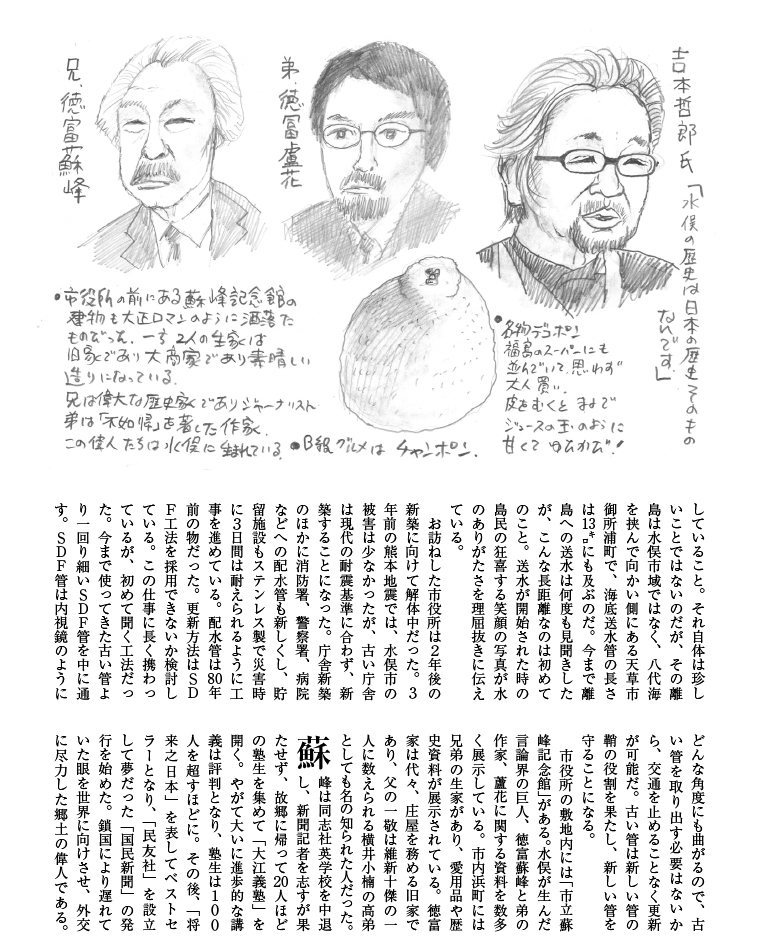 吉本哲郎氏
「水俣の歴史は日本の歴史そのもの
なんです。」
弟・徳冨蘆花
兄・徳富蘇峰
●市役所の前にある蘇峰記念館の
建物も大正ロマンのように洒落た
ものだった。一方2人の生家は
旧家であり大商家であり素晴しい
造りになっている。
兄は偉大な歴史家でありジャーナリスト
弟は「不如帰」を著した作家。
この偉人たちは水俣に生まれている。
●B級グルメは チャンポン.
●名物デコポン
福島のスーパーにも
並んでいて思わず
大人買い.
皮をむくと まるで
ジュースの玉のように
甘くて
していること。それ自体は珍し
いことではないのだが、その離
島は水俣市域ではなく、八代海
を挟んで向かい側にある天草市
御所浦町で、海底送水管の長さ
は13㌔にも及ぶのだ。今まで離
島への送水は何度も見聞きした
が、こんな長距離なのは初めて
のこと。送水が開始された時の
島民の狂喜する笑顔の写真が水
のありがたさを理屈抜きに伝え
ている。
お訪ねした市役所は2年後の
新築に向けて解体中だった。3
年前の熊本地震では、水俣市の
被害は少なかったが、古い庁舎
は現代の耐震基準に合わず、新
築することになった。庁舎新築
のほかに消防署、警察署、病院
などへの配水管も新しくし、貯
留施設もステンレス製で災害時
に3日間は耐えられるように工
事を進めている。配水管は80年
前の物だった。更新方法はSD
F工法を採用できないか検討し
ている。この仕事に長く携わっ
ているが、初めて聞く工法だっ
た。今まで使ってきた古い管よ
り一回り細いSDF管を中に通
す。SDF管は内視鏡のように
どんな角度にも曲がるので、古
い管を取り出す必要はないか
ら、交通を止めることなく更新
が可能だ。古い管は新しい管の
鞘の役割を果たし、新しい管を
守ることになる。
市役所の敷地内には「市立蘇
峰記念館」がある。水俣が生んだ
言論界の巨人、徳富蘇峰と弟の
作家、蘆花に関する資料を数多
く展示している。市内浜町には
兄弟の生家があり、愛用品や歴
史資料が展示されている。徳富
家は代々、庄屋を務める旧家で
あり、父の一敬は維新十傑の一
人に数えられる横井小楠の高弟
としても名の知られた人だった。
蘇峰は同志社英学校を中退
し、新聞記者を志すが果
たせず、故郷に帰って20人ほど
の塾生を集めて「大江義塾」を
開く。やがて大いに進歩的な講
義は評判となり、塾生は100
人を超すほどに。その後、「将
来之日本」を表してベストセ
ラーとなり、「民友社」を設立
して夢だった「国民新聞」の発
行を始めた。鎖国により遅れて
いた眼を世界に向けさせ、外交
に尽力した郷土の偉人である。